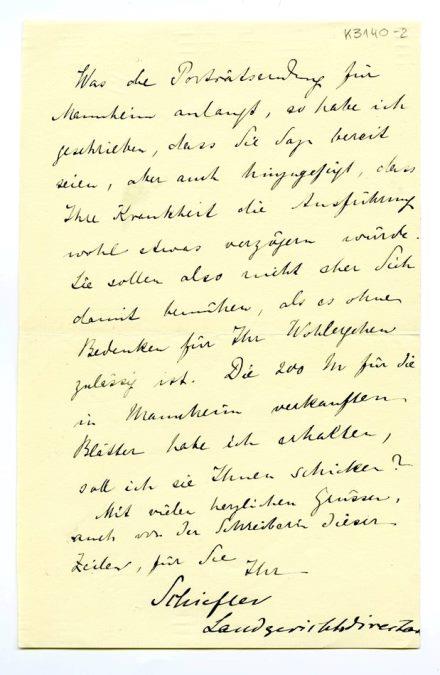 K3140-2
Was die Porträtsendung für
Mannheim anlangt, so habe ich
geschrieben, dass Sie dazu bereit
seien, aber auch hinzugefügt, dass
Ihre Krankheit die Ausführung
wohl etwas verzögern würde.
Sie sollen also nicht eher Sich
damit bemühen, als es ohne
Bedenken für Ihr Wohlergehen
zulässig ist. Die 200 M für die
in Mannheim verkauften
Blätter habe ich erhalten,
soll ich sie Ihnen schicken?
Mit vielen herzlichen Grüssen,
auch von der Schreiberin dieser
Zeilen, für Sie
Ihr
Schiefler
Landgerichtsdirector